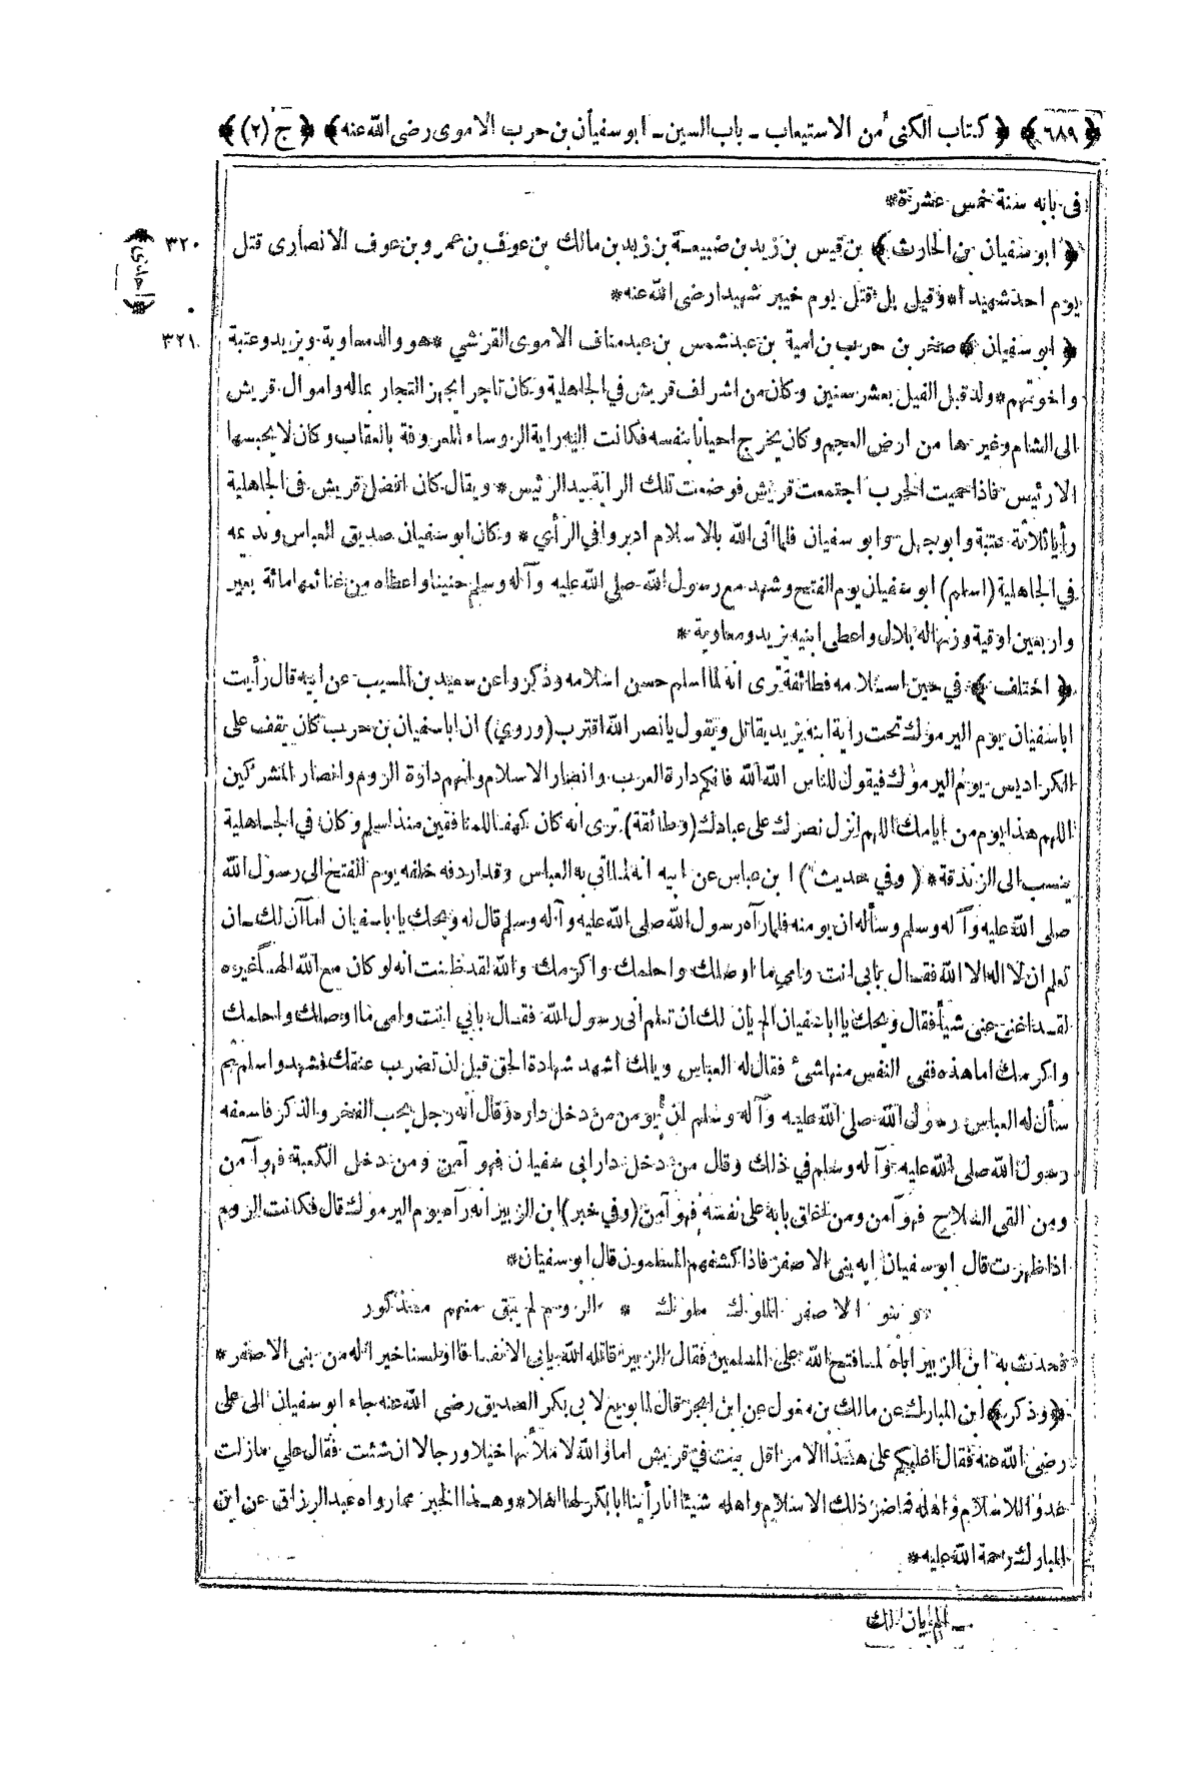 ﴿٦٨٩﴾ ﴿كتاب الكنى من الاستيعاب ـ باب السين ـ ابو سفيان بن حرب الاموى رضى الله عنه﴾ ﴿ج (٢)﴾
فى بابه سنة خمس عشرة*
﴿ابو سفيان بن الحارث﴾ بن قيس بن زيد بن ضبيعة بن زيد بن مالك بن عوف بن عمرو بن عوف الانصارى قتل ٣٢٠
يوم احد شهيدا* وقيل بل قتل يوم خيبر شهيدا رضى الله عنه*
﴿ابو سفيان﴾ صخر بن حرب بن امية بن عبد شمس بن عبد مناف الاموى القرشي* هو والد معاوية ويزيد وعتبة ٣٢١
واخوتهم* ولد قبل الفيل بعشر سنين وكان من اشراف قريش في الجاهلية وكان تاجرا يجهز التجار بماله واموال قريش
الى الشام وغيرها من ارض العجم وكان يخرج احيانا بنفسه فكانت اليه راية الروساء المعروفة بالعقاب وكان لا يحبسها
الا رئيس فاذا حميت الحرب اجتمعت قريش فوضعت تلك الراية بيد الرئيس* ويقال كان افضل قريش فى الجاهلية
رأيا ثلاثة عتبة وابو جهل وابو سفيان فلما اتى الله بالاسلام ادبروا في الرأي* وكان ابو سفيان صديق العباس ونديمه
في الجاهلية (اسلم) ابو سفيان يوم الفتح وشهد مع رسول الله صلى الله عليه وآله وسلم حنينا واعطاه من غنائمها مائة بعير
واربعين اوقية وزنها له بلال واعطى ابنيه يزيد ومعاوية*
﴿اختلف﴾ في حين اسلامه فطائفة ترى انه لما اسلم حسن اسلامه وذكروا عن سعيد بن المسيب عن ابيه قال رأيت
ابا سفيان يوم اليرموك تحت راية ابنه يزيد يقاتل ويقول يا نصر الله اقترب (وروي) ان ابا سفيان بن حرب كان يقف على
الكراديس يوم اليرموك فيقول للناس الله الله فانكم دارة العرب وانصار الاسلام وانهم دارة الروم وانصار المشركين
اللهم هذا يوم من ايامك اللهم انزل نصرك على عبادك (وطائفة) ترى انه كان كهفا للمنافقين منذ اسلم وكان في الجاهلية
ينسب الى الزندقة* (وفي حديث) ابن عباس عن ابيه انه لما اتى به العباس وقد اردفه خلفه يوم الفتح الى رسول الله
صلى الله عليه وآله وسلم وسأله ان يومنه فلما رآه رسول الله صلى الله عليه وآله وسلم قال له ويحك يا با سفيان اما آن لك ان
تعلم ان لا اله الا الله فقال بابى انت وامي ما اوصلك واحلمك واكرمك والله لقد ظننت انه لو كان مع الله الها غيره
لقد اغنى عنى شيأ فقال ويحك يا ابا سفيان الم يان لك ان تعلم انى رسول الله فقال بابي انت وامى ما اوصلك واحلمك
واكرمك اما هذه ففى النفس منها شئ فقال له العباس ويلك اشهد شهادة الحق قبل ان تضرب عنقك فشهد واسلم ثم
سأل له العباس رسول الله صلى الله عليه وآله وسلم ان يومن من دخل داره وقال انه رجل يحب الفخر والذكر فاسعفه
رسول الله صلى الله عليه وآله وسلم في ذلك وقال من دخل دار ابى سفيان فهو آمن ومن دخل الكعبة فهو آمن
ومن القى السلاح فهو آمن ومن اغلق بابه على نفسه فهو آمن (وفي خبر) ابن الزبير انه رآه يوم اليرموك قال فكانت الروم
اذا ظهرت قال ابو سفيان ايه بنى الاصفر فاذا كشفهم المسلمون قال ابو سفيان*
وبنو الاصفر الملوك ملوك * الروم لم يبق منهم مذكور
فحدث به ابن الزبير اباه لما فتح الله على المسلمين فقال الزبير قاتله الله يابى الا نفاقا اولسنا خيرا له من بنى الاصفر*
﴿وذكر﴾ ابن المبارك عن مالك بن مغول عن ابن ابجر قال لما بويع لابى بكر الصديق رضى الله عنه جاء ابو سفيان الى على
رضى الله عنه فقال اغلبكم على هذا الامر اقل بيت في قريش اما والله لاملأنها خيلا ورجالا ان شئت فقال علي ما زلت
عدوا للاسلام واهله فما ضر ذلك الاسلام واهله شيئا انا رأينا ابا بكر لها اهلا* وهذا الخبر مما رواه عبد الرزاق عن ابن
المبارك رحمة الله عليه*
ـ الم يان لك